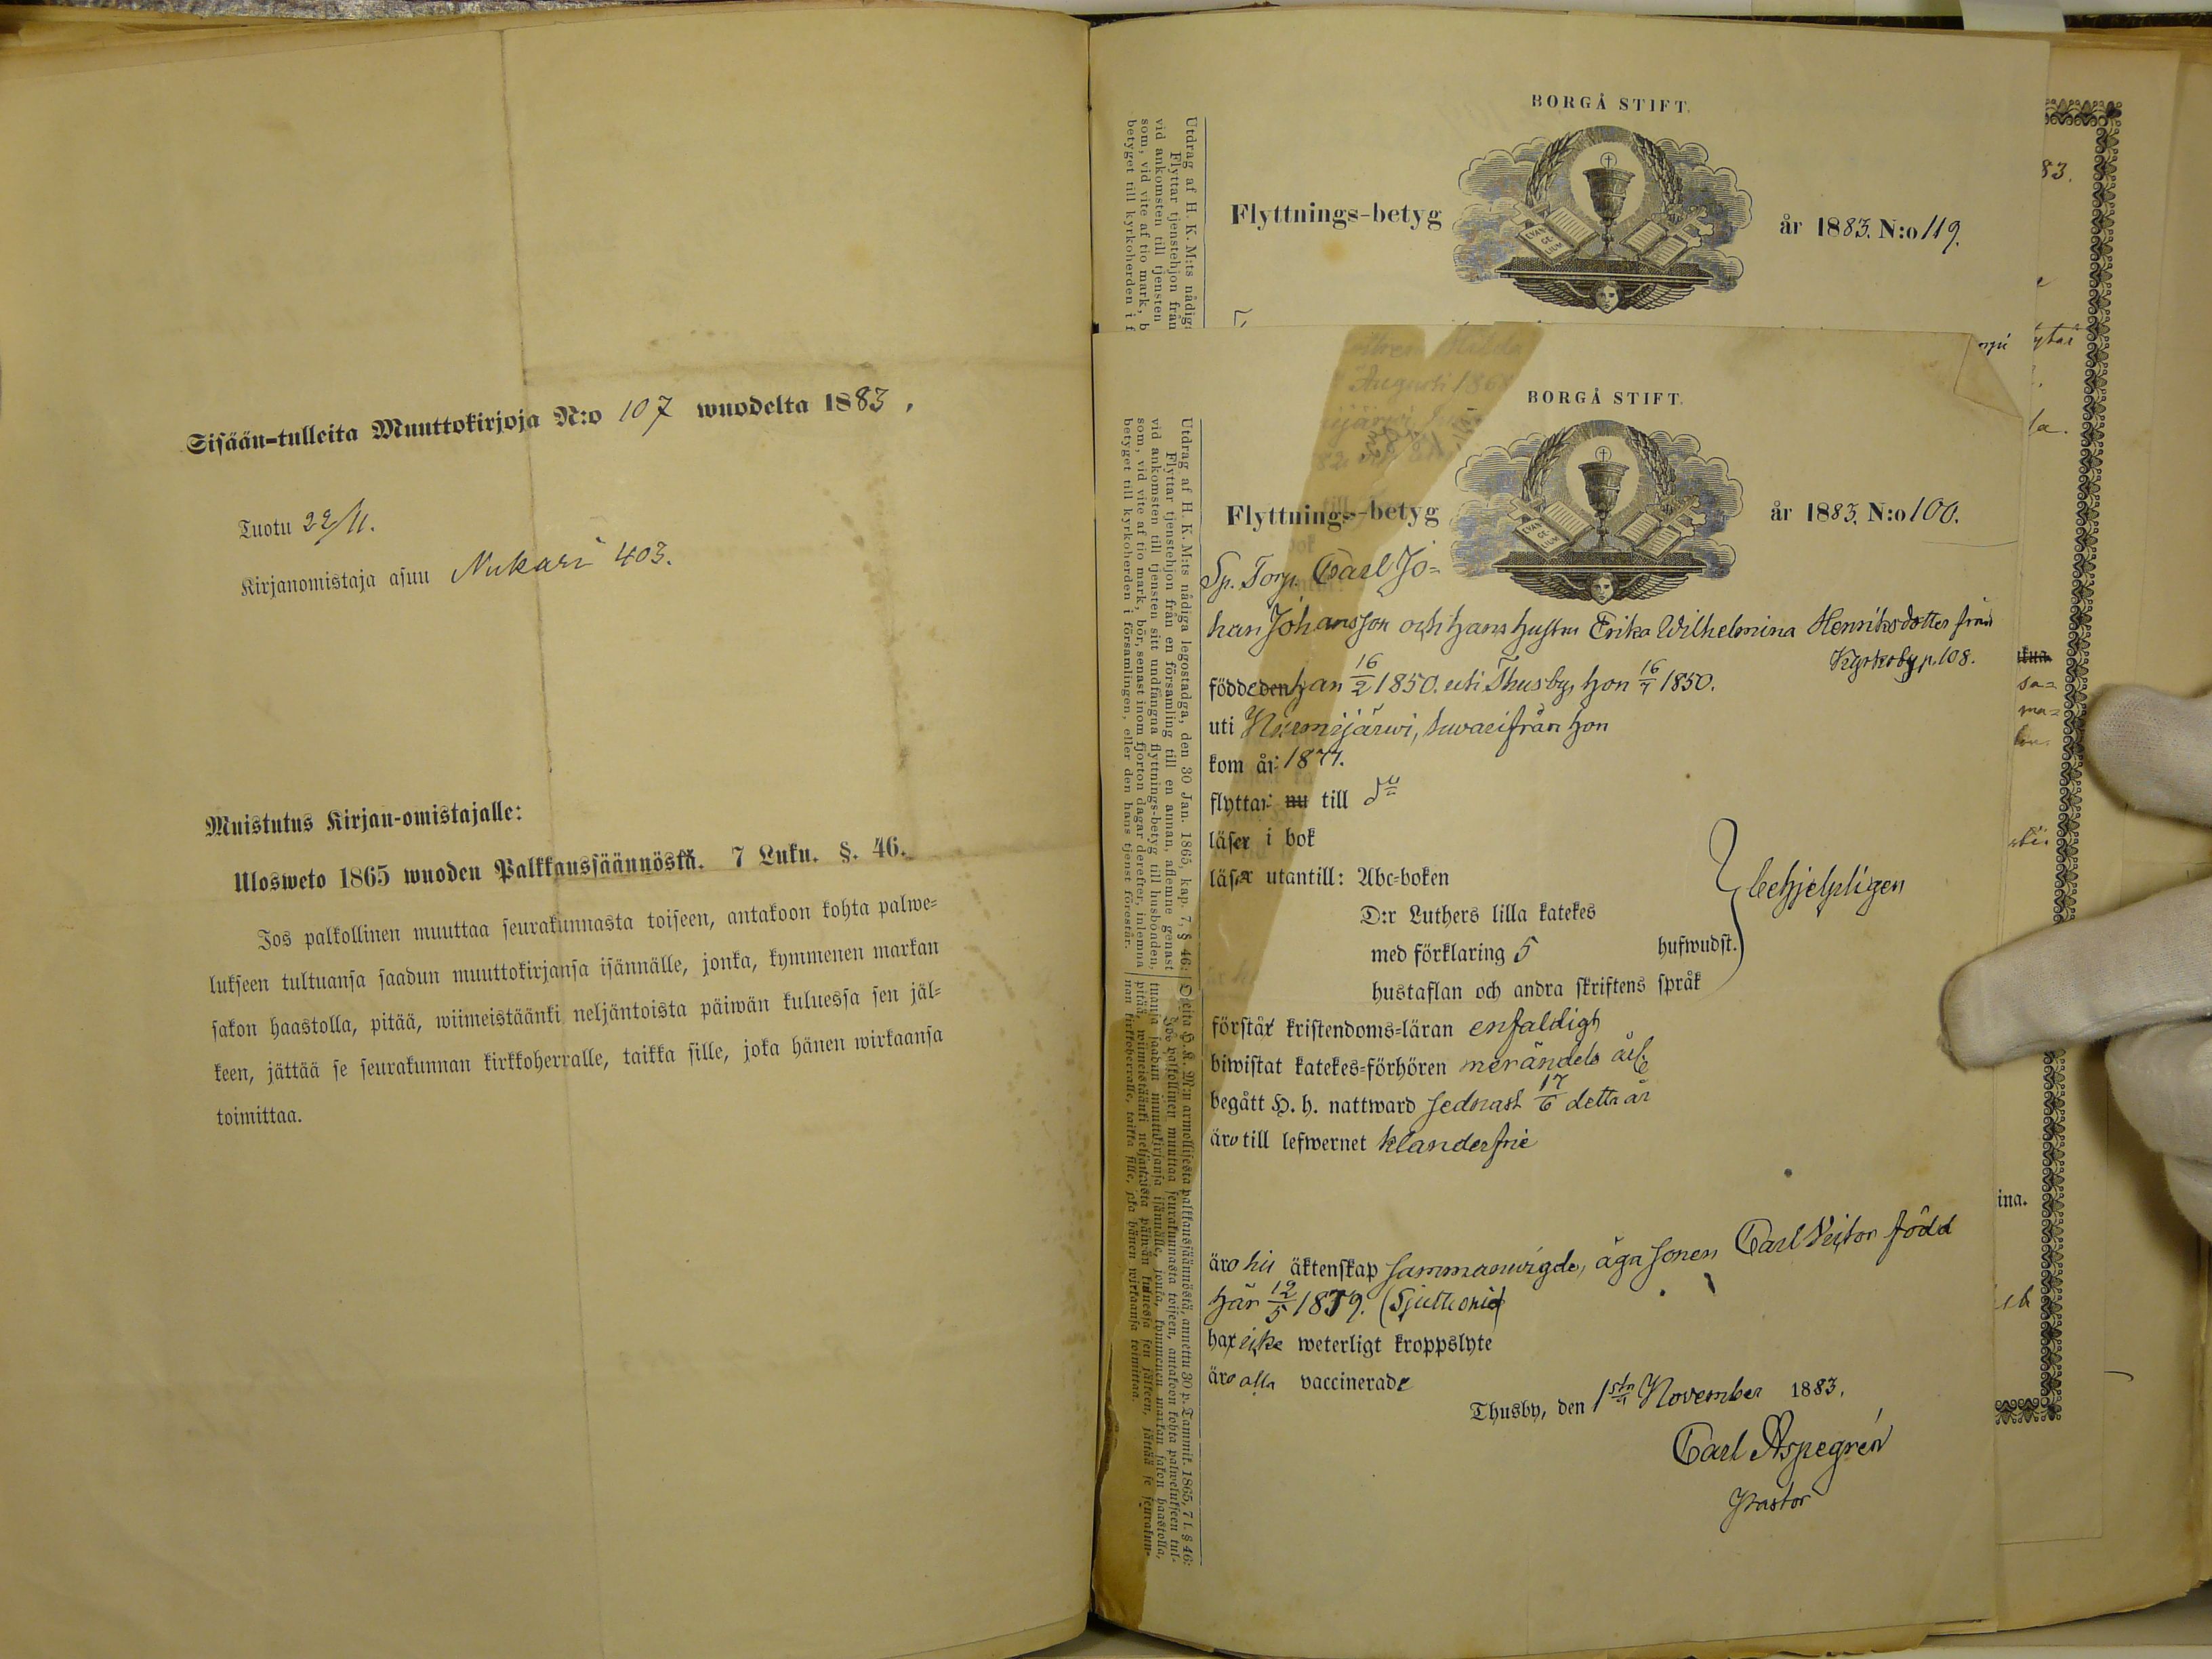 Sisään-tulleita Muuttokirjoja N:o 107 wuodelta 1883,
Tuotu 22/11.
Kirjanomistaja asuu Nukari 403.
Muistutus Kirjan-omistajalle:
Ulosweto 1865 wuoden Palkkaussäännöstä. 7 Luku. §. 46.
Jos palkollinen muuttaa seurakunnasta toiseen, antakoon kohta palwe-
lukseen tultuansa saadun muuttokirjansa isännälle, jonka, kymmenen markan
sakon haastolla, pitää, wiimeistäänki neljäntoista päiwän kuluessa sen jäl-
keen, jättää se seurakunnan kirkkoherralle, taikka sille, joka hänen wirkaansa
toimittaa.
BORGÅ STIFT.
Flyttnings-betyg
EVAN GE LIUM
år 1883. N:o 119.
Utdrag af H. K. M:ts nådig
Flyttar tjenstehjon från
vid ankomsten till tjensten
som, vid vite af tio mark, b
betyget till kyrkoherden i f
BORGÅ STIFT.
Flyttnings-betyg
EVAN GE LIUM
år 1883. N:o 100.
Sp. Torp. Carl Jo-
han Johansson och hans hustru Erika Wilhelmina Henriksdotter från
Kyrkoby p. 108.
födde den han 16/2 1850. uti Thusby, hon 16/7 1850.
uti Nurmijärwi, hwarifrån hon
kom år 1877.
flyttar nu till do
läser i bok
läser utantill: Abc-boken
D:r Luthers lilla katekes
med förklaring 5 hufwudst.
hustaflan och andra skriftens språk
behjelpligen
förstår kristendoms-läran enfaldigt
biwistat katekes-förhören merändels årl.
begått H. h. nattward sednast 17/6 detta år
äro till lefwernet klanderfrie
äro i äktenskap sammanwigde, äga sonen Carl Victor född
här 12/5 1879.
har icke weterligt kroppslyte
äro alla vaccinerade
Thusby, den 1sta November 1883.
Carl Aspegrén
Pastor
Utdrag af H. K. M:ts nådiga legostadga, den 30 Jan. 1865, kap. 7, § 46:
Flyttar tjenstehjon från en församling till en annan, aflemne genast
vid ankomsten till tjensten sitt undfångna flyttnings-betyg till husbonden,
som, vid vite af tio mark, bör, senast inom fjorton dagar derefter, inlemna
betyget till kyrkoherden i församlingen, eller den hans tjenst förestår.
Oteita H. K. M:n armollisesta palkkaussäännöstä, annettu 30 p. Tammik. 1865, 7 l. § 46:
Jos palkollinen muuttaa seurakunnasta toiseen, antakoon kohta palwelukseen tul-
tuansa saadun muuttokirjansa isännälle, jonka, kymmenen markan sakon haastolla,
pitää, wiimeistäänki neljäntoista päiwän kuluessa sen jälkeen, jättää se seurakun-
nan kirkkoherralle, taikka sille, joka hänen wirkaansa toimittaa.
83.
la.
sa-
ma-
ina.